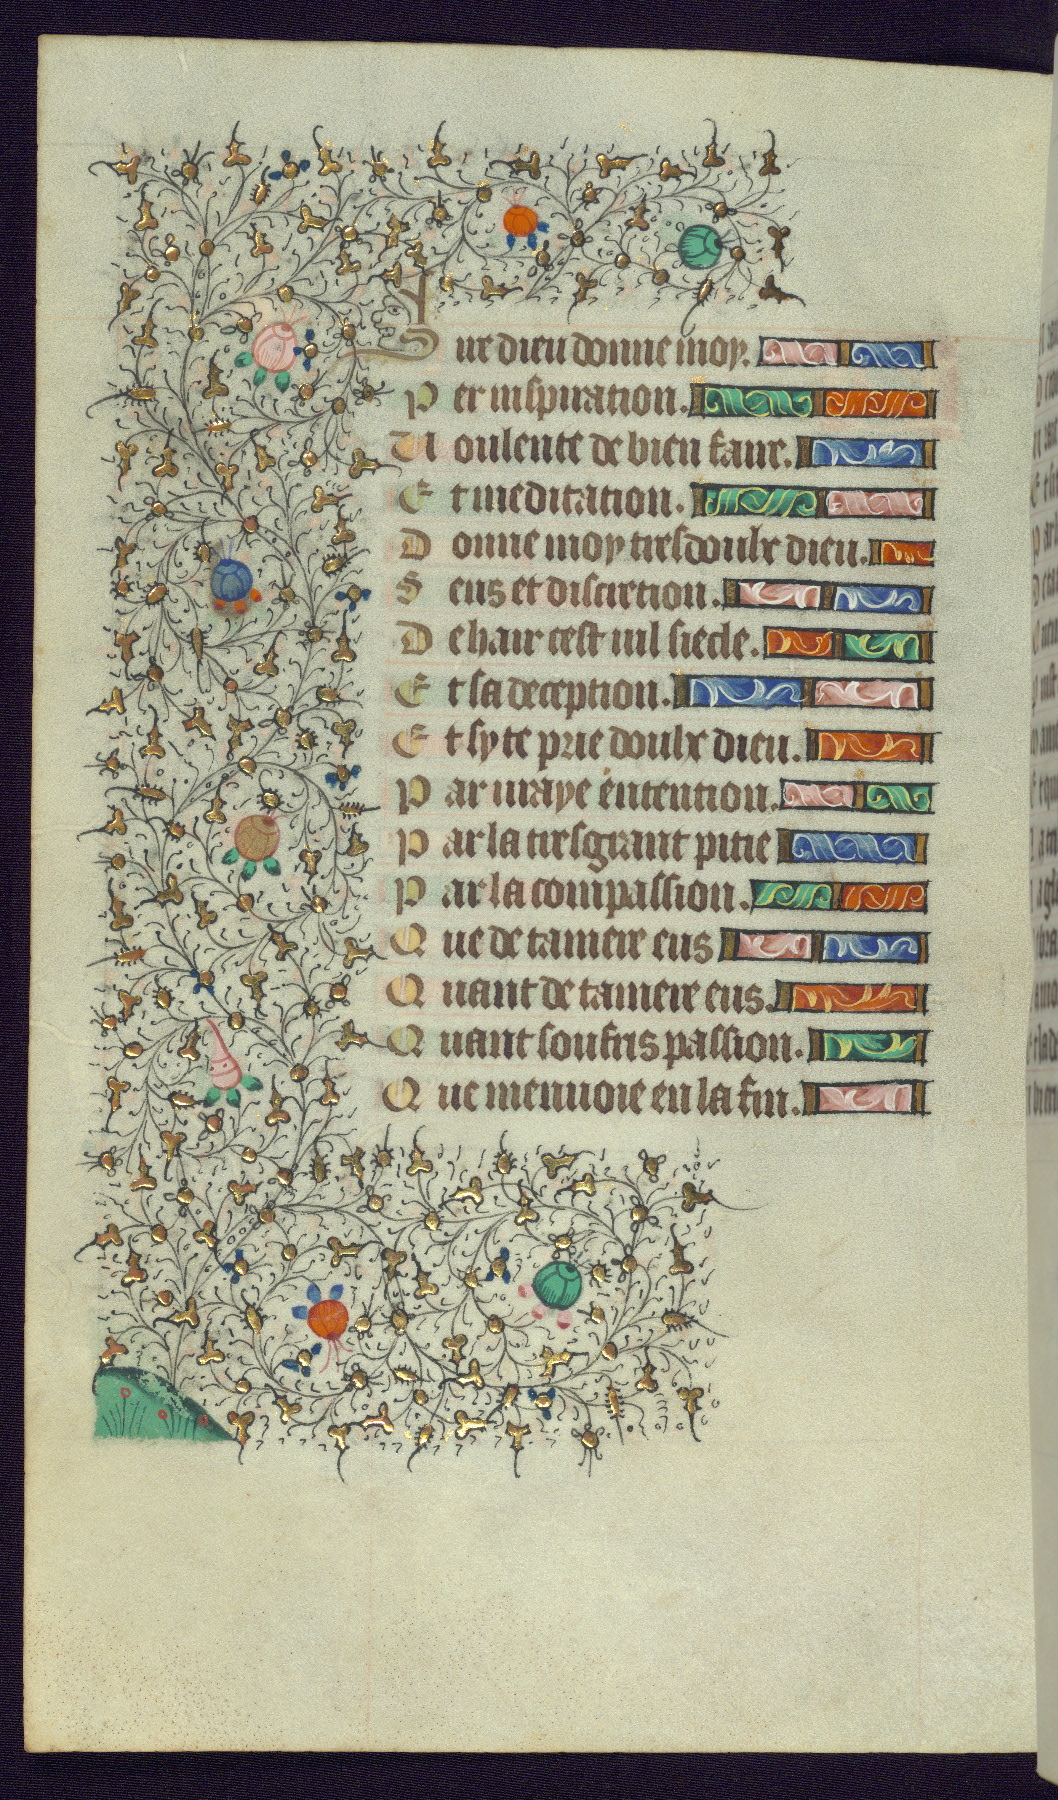 Sire dieu donne moy.
Per inspiration.
Uoulente de bien faire.
Et meditation.
Donne moy tresdoulx dieu.
Sens et discretion.
De hair cest uil siecle.
Et sa deception.
Et sy te prie doulx dieu.
Par uraye entention.
Par la tresgrant pitie
Par la compassion.
Que de ta mere eus
Quant de ta mere eus.
Quant soufris passion.
Que menuoie en la fin.